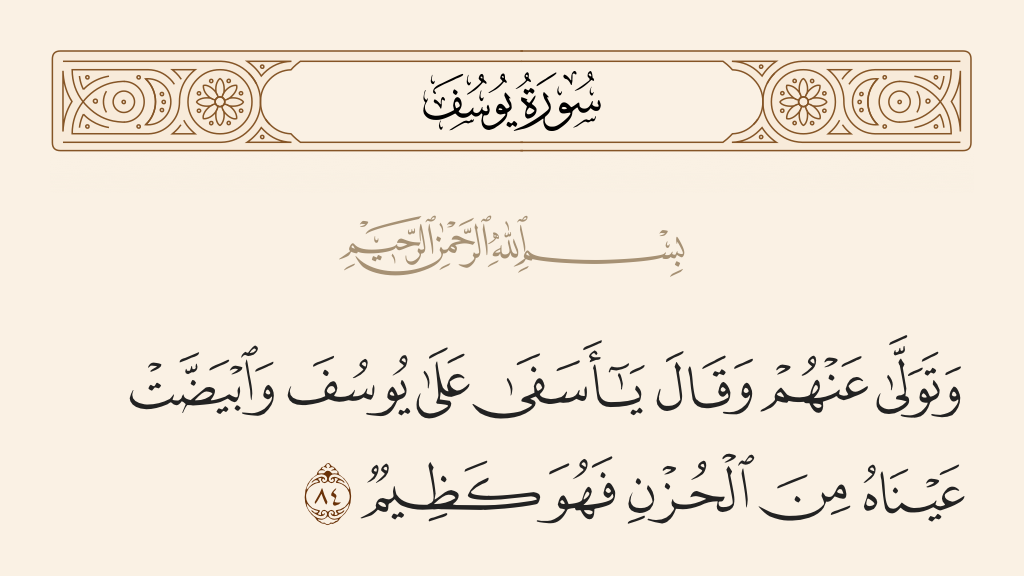 سُورَةُ يُوسُفَ
بِسْمِ ٱللَّهِ ٱلرَّحْمَٰنِ ٱلرَّحِيمِ
وَتَوَلَّىٰ عَنْهُمْ وَقَالَ يَـٰٓأَسَفَىٰ عَلَىٰ يُوسُفَ وَٱبْيَضَّتْ
عَيْنَاهُ مِنَ ٱلْحُزْنِ فَهُوَ كَظِيمٌ ٨٤